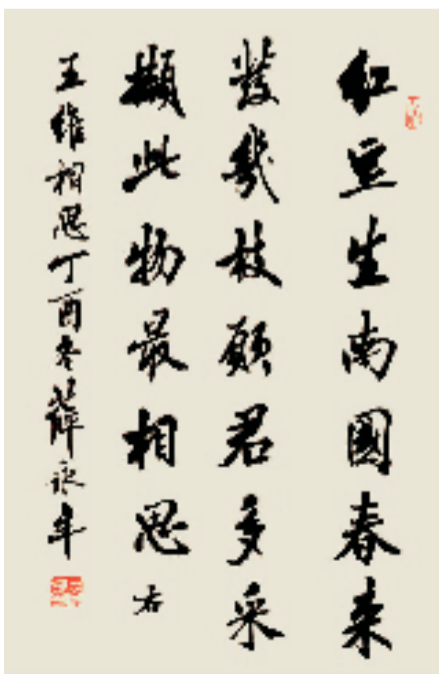 红豆生南國春来
发几枝願君多采
撷此物最相思右
王维相思丁酉冬薛永年